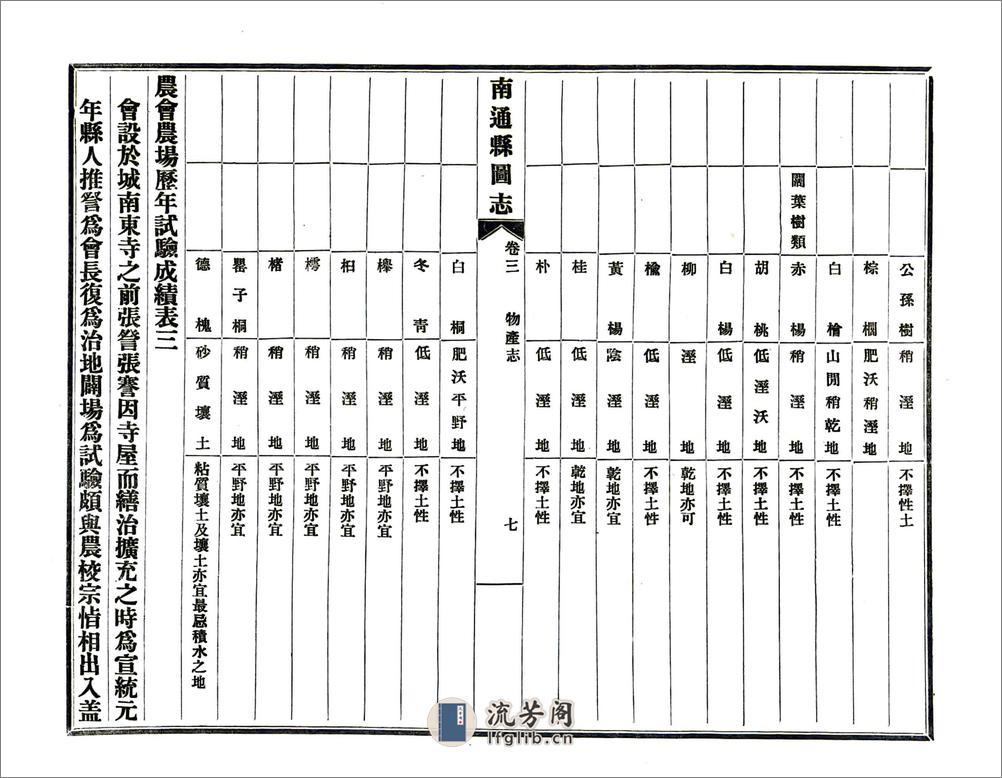 公孫樹 稍溼地 不擇性土
棕櫚 肥沃稍溼地
白檜 山閒稍乾地 不擇土性
闊葉樹類 赤楊 稍溼地 不擇土性
胡桃 低溼沃地 不擇土性
白楊 低溼地 不擇土性
柳 溼地 乾地亦可
楡 低溼地 不擇土性
黃楊 陰溼地 乾地亦宜
桂 低溼地 乾地亦宜
朴 低溼地 不擇土性
南通縣圖志 卷三 物產志 七
白桐 肥沃平野地 不擇土性
冬靑 低溼地 不擇土性
櫸 稍溼地 平野地亦宜
桕 稍溼地 平野地亦宜
樗 稍溼地 平野地亦宜
楮 稍溼地 平野地亦宜
罌子桐 稍溼地 平野地亦宜
德槐 砂質壤土 粘質壤土及壤土亦宜最忌積水之地
農會農場歷年試驗成績表三
會設於城南東寺之前張詧張謇因寺屋而繕治擴充之時爲宣統元
年縣人推詧爲會長復爲治地闢場爲試驗頗與農校宗恉相出入盖
流芳阁
lfglib.cn